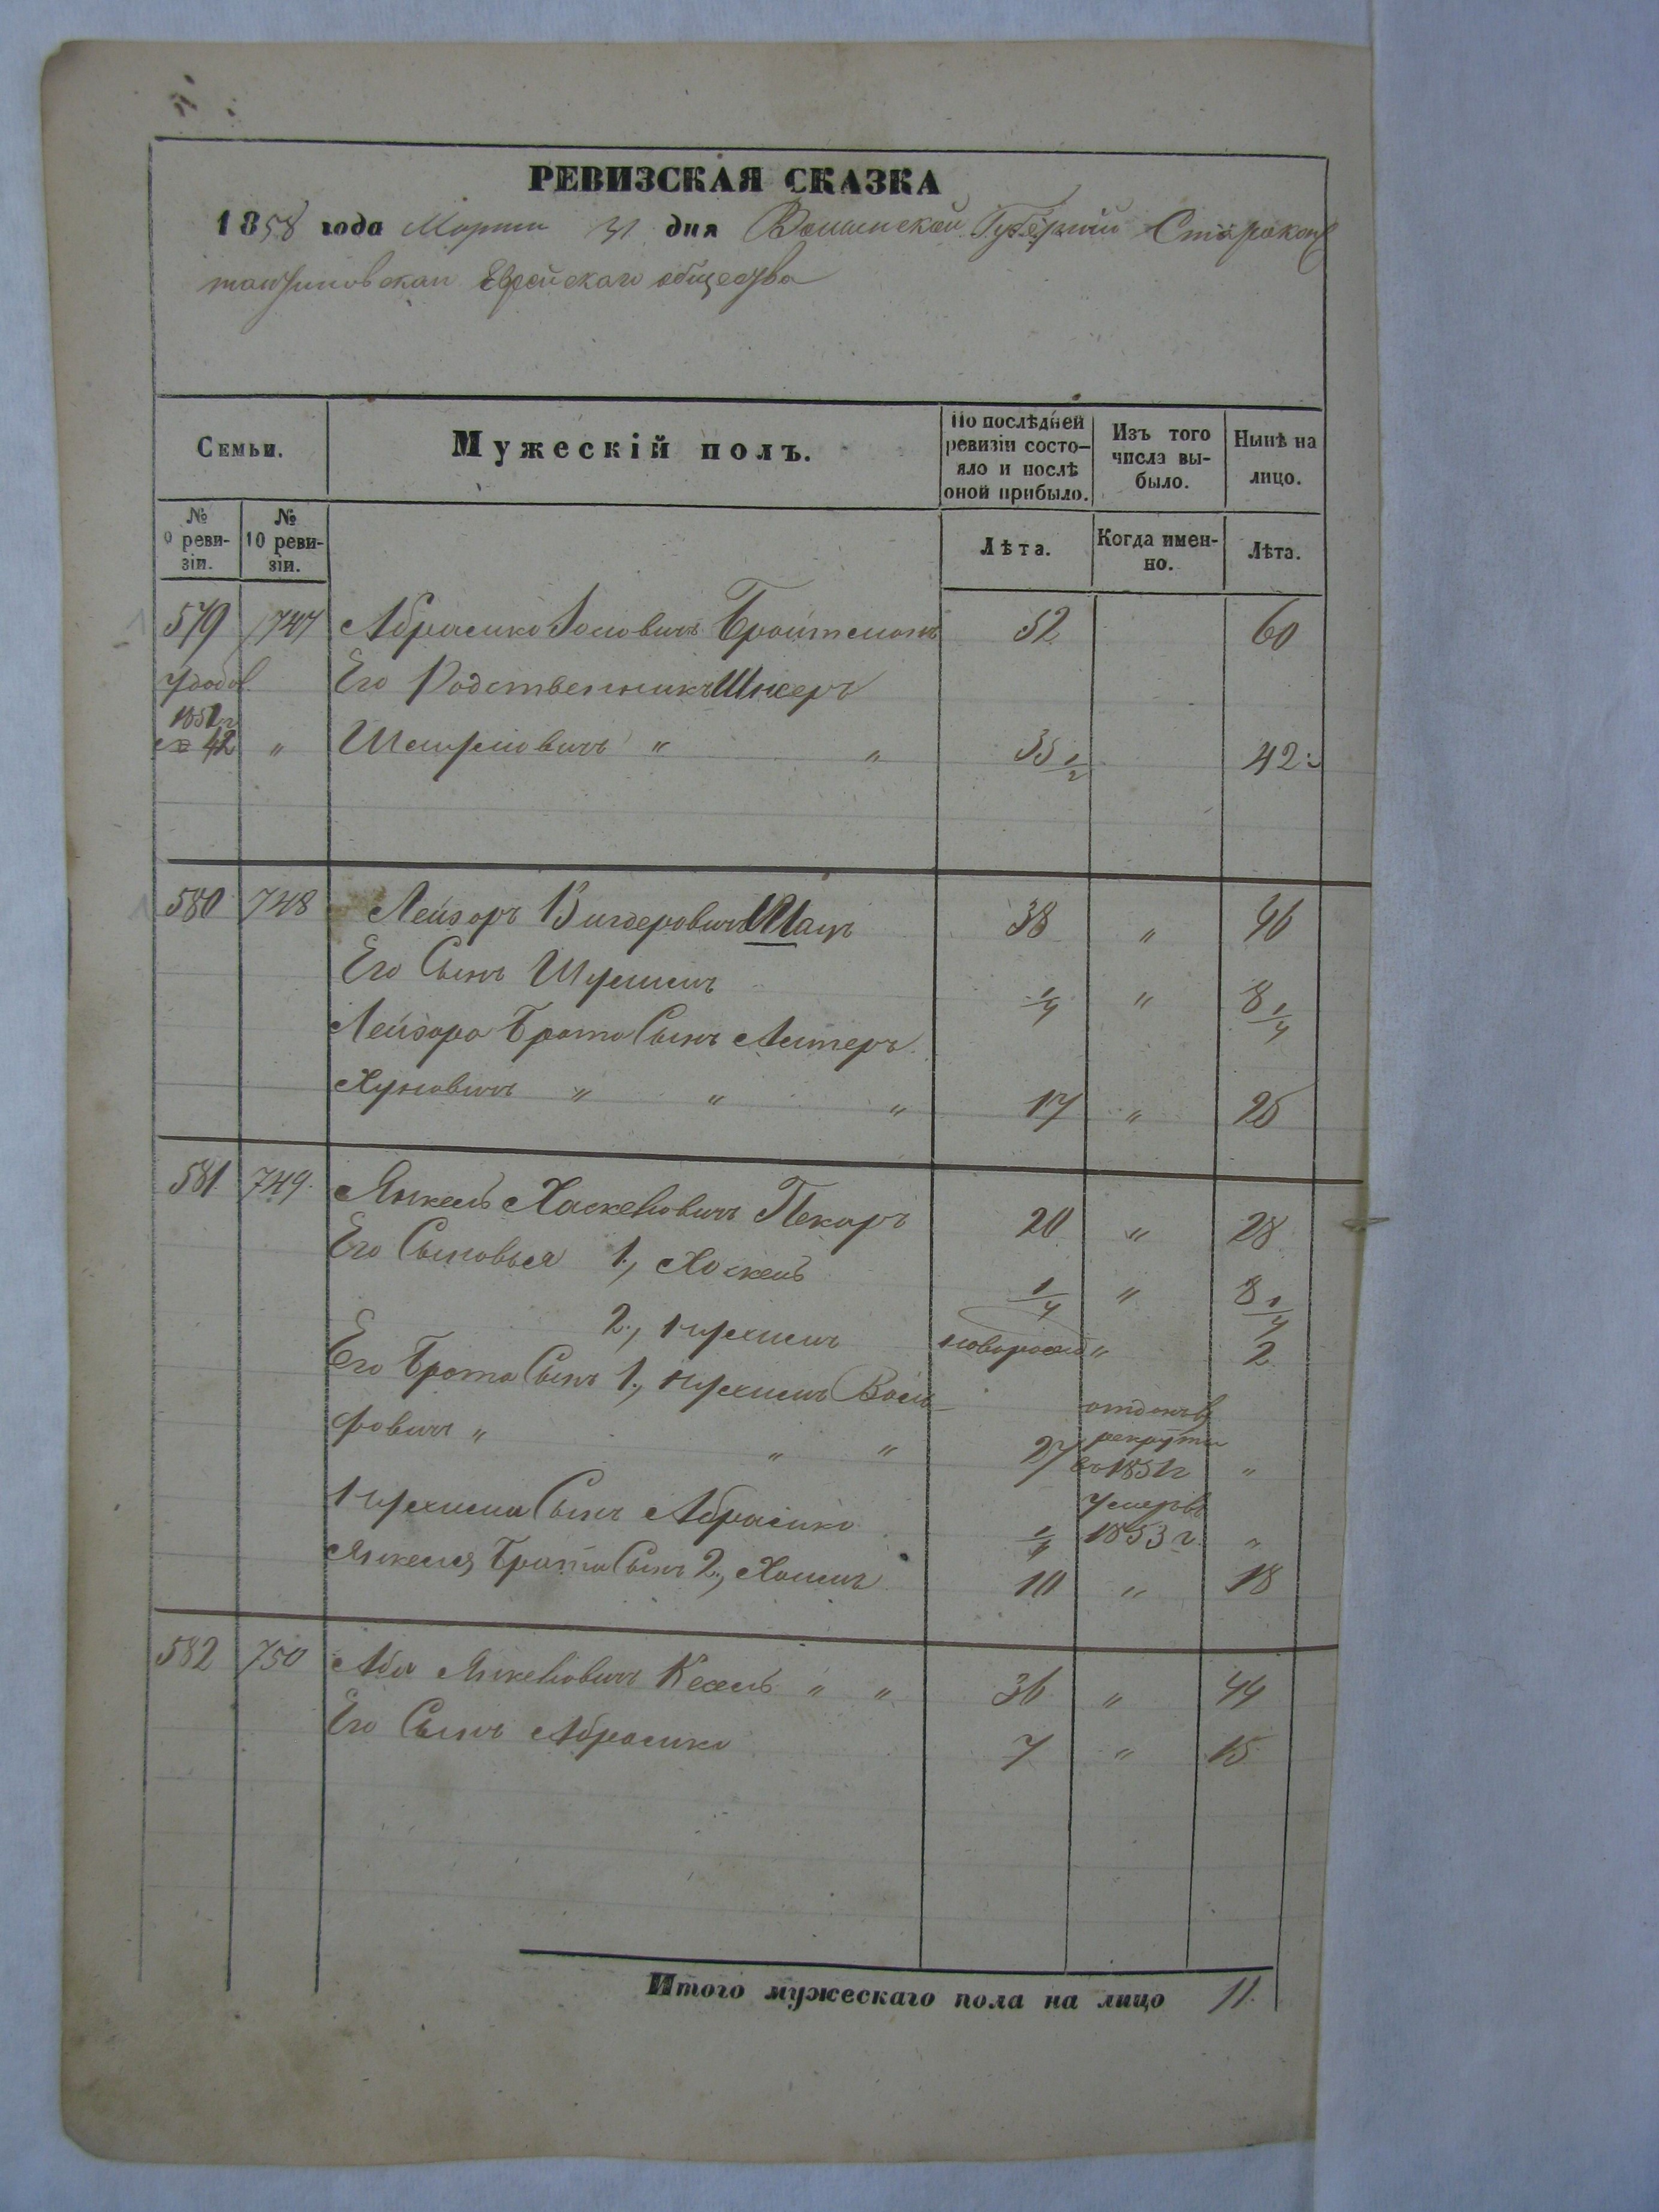 РЕВИЗСКАЯ СКАЗКА
1858 года Марта 31 дня Волынской Губерніи Старокон
тантиновскаго Еврейскаго общества
Семьи.
Мужескій полъ.
По послѣдней ревизіи состо-яло и послѣ оной прибыло.
Изъ того числа вы-было.
Нынѣ на лицо.
№ 9 реви-зіи.
№ 10 реви-зіи.
Лѣта.
Когда имен-но.
Лѣта.
579 747 Абрамко Іосіовичъ Бройтманъ 52 60
Его Родственникъ Шкеръ
1851г
№ 42 " Шмулiовичъ " " 35 1/2 42
580 748 Лейзоръ Вигдеровичъ Шацъ 38 " 46
Его Сынъ Шулимъ 1/4 " 8 1/4
Лейзора Брата Сынъ Алтеръ
Хуновичъ " " " 17 " 25
581 749 Янкель Хаскеловичъ Пекаръ 20 " 28
Его Сыновья 1., Хаскель 1/4 " 8 1/4
2., Нухимъ новорожд " 2
Его Брата Сынъ 1., Нухимъ Воль-
фовичъ " " " 27 отданъ в рекруты въ 1851г "
Нухима Сынъ Абрамко 1/4 Умеръ въ 1853 г. "
Янкеля Брата Сынъ 2., Хаимъ 10 " 18
582 750 Аба Янкеловичъ Кесель " " 36 " 44
Его Сынъ Абрамко 7 " 15
Итого мужескаго пола на лицо 11.